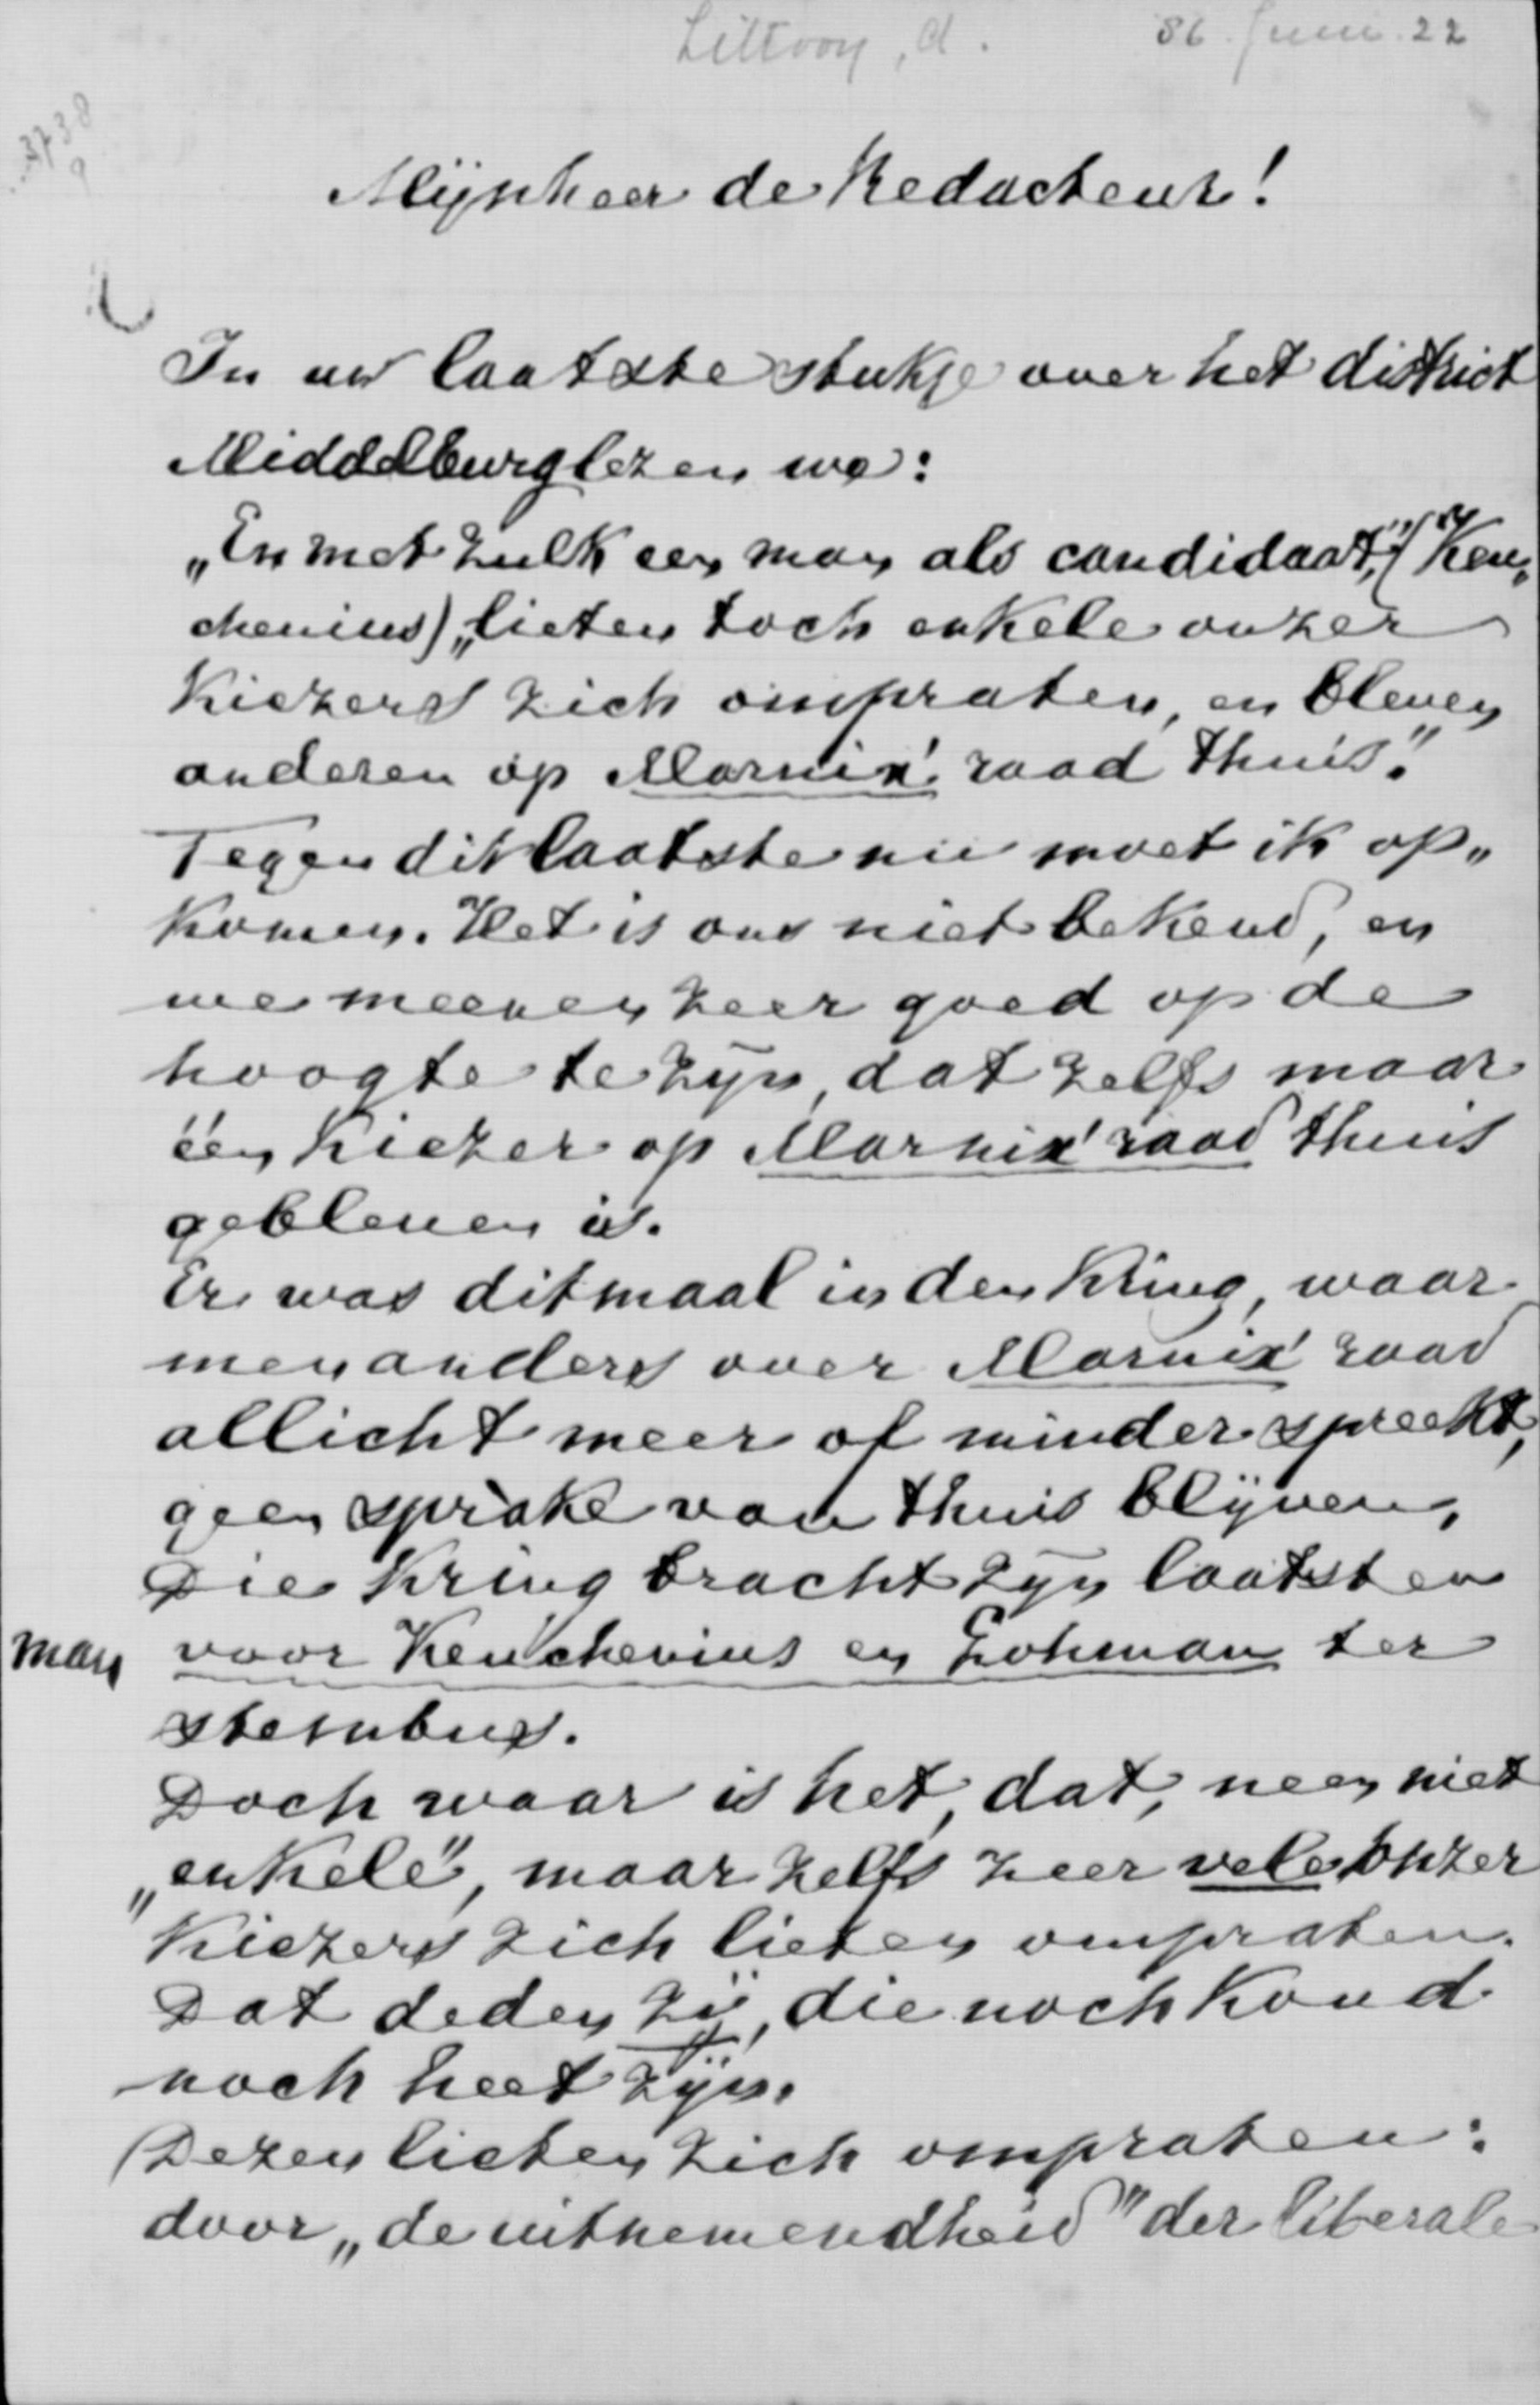 Littooy, A. 86. Juni. 22
3738
9
Mijnheer de Redacteur!
In uw laatste stukje over het district
Middelburg lezen we:
„En met zulk een man als candidaat," (Keu„
chenius) „lieten toch enkele onzer
kiezers zich ompraten, en bleven
anderen op Marnix' raad thuis."
Tegen dit laatste nu moet ik op„
komen. Het is ons niet bekend, en
we meenen zeer goed op de
hoogte te zijn, dat zelfs maar
één kiezer op Marnix' raad thuis
gebleven is.
Er was ditmaal in den kring, waar
men anders over Marnix' raad
allicht meer of minder spreekt,
geen sprake van thuis blijven,
Die kring bracht zijn laatsten
man voor Keuchenius en Lohman ter
stembus.
Doch waar is het, dat, neen niet
„enkele", maar zelfs zeer vele onzer
kiezers zich lieten ompraten.
Dat deden zij, die noch koud
noch heet zijn.
Dezen lieten zich ompraten:
door „de uitnemendheid" der liberale